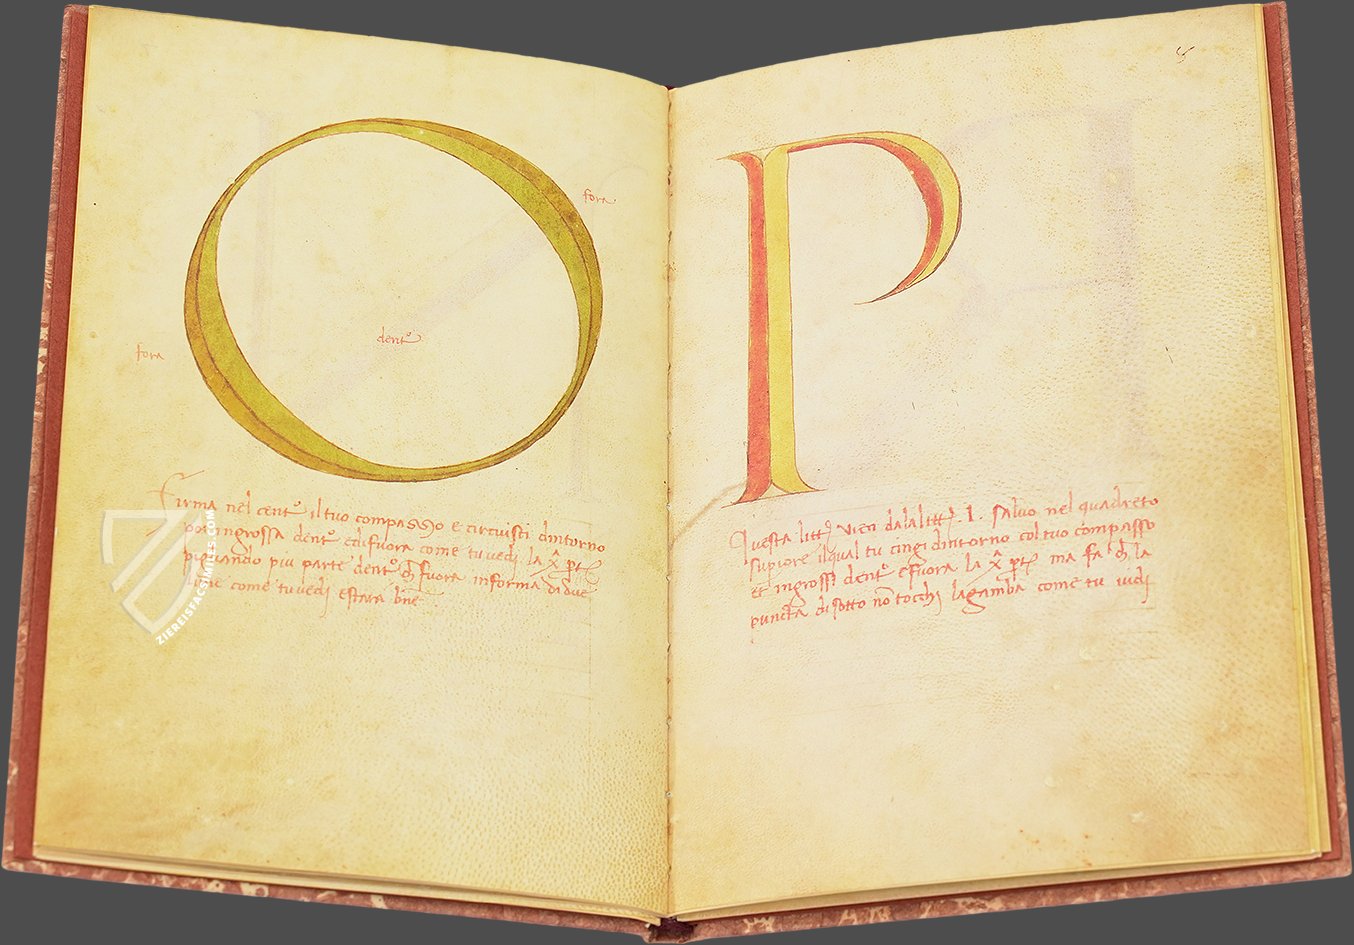 O
fora
dent°
fora
Firma nel cent° il tuo compasso e circuisci dintorno
poi ingrossa dent° e di fuora come tu vedi la X pt
pigliando piu parte dent° ch fuora in forma di due
lune come tu vedi e stara bñe
ZIEREISFACSIMILES.COM
P
Questa litt vien dala litt .I. salvo nel quadreto
supiore il qual tu cingi dintorno col tuo compasso
et ingrossi dent° e fuora la X pt ma fa ch la
puncta di sotto nõ tocchi la gamba come tu vidi